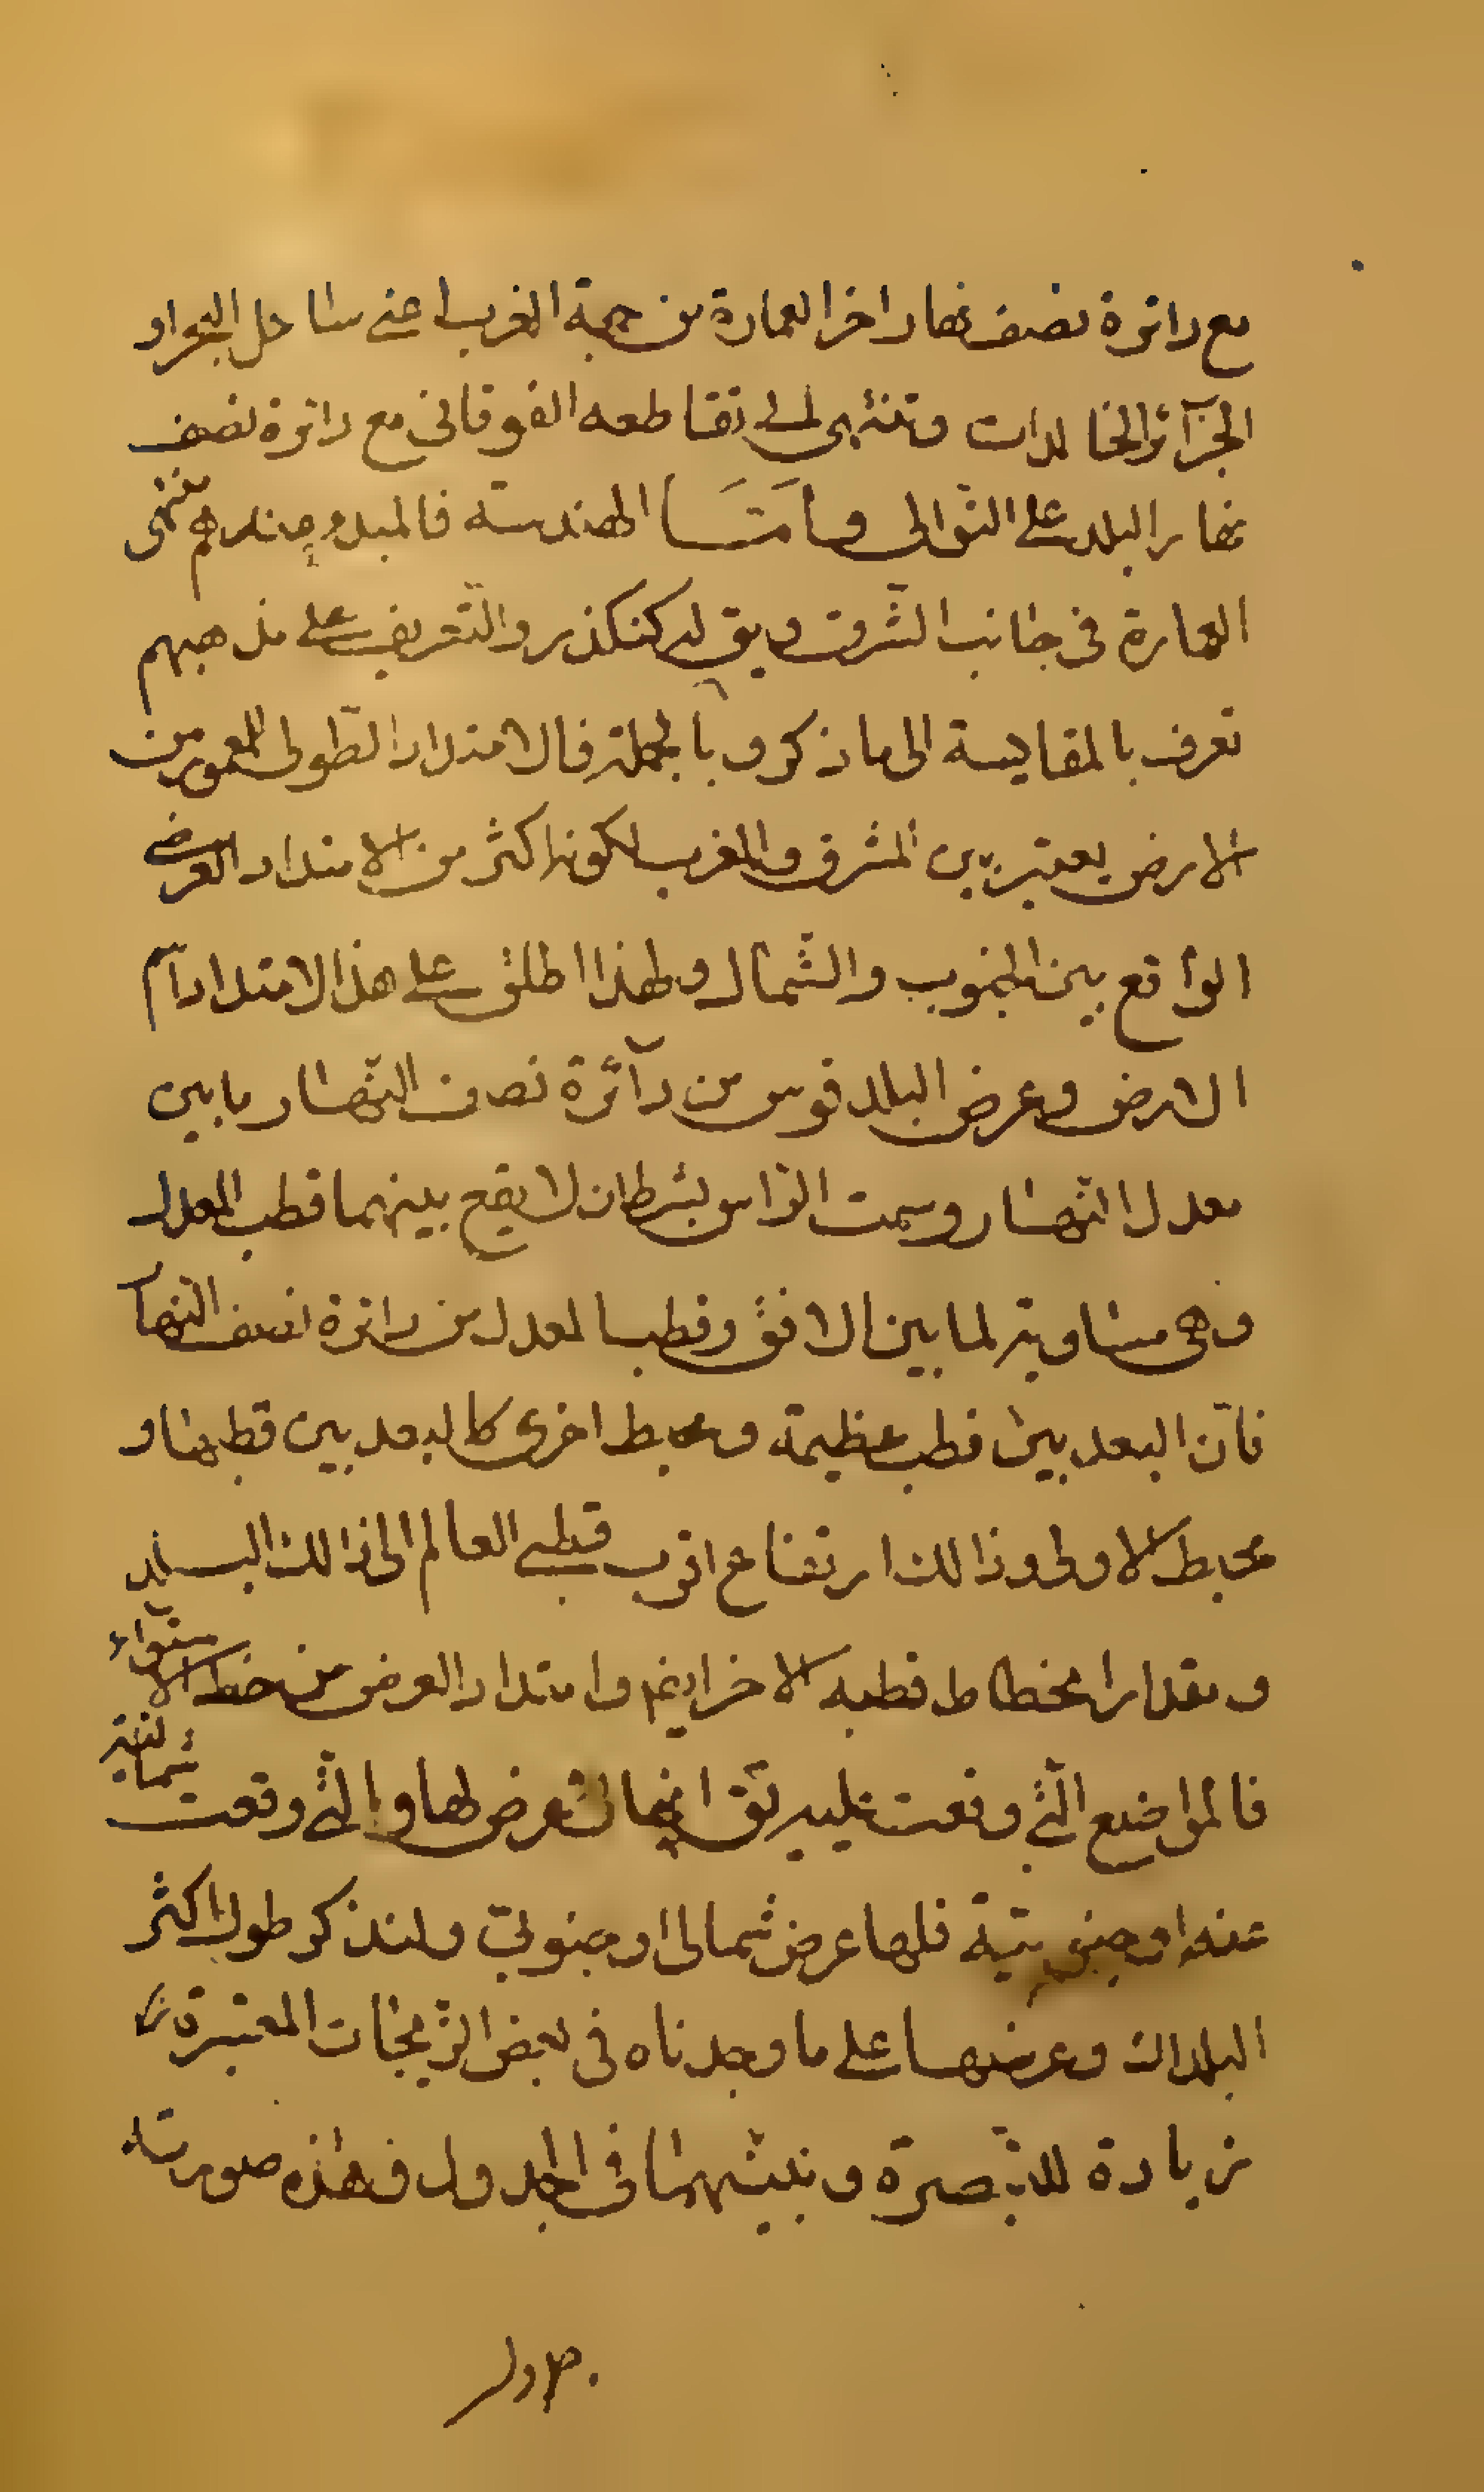 مع دائرة نصف نهار اخر العمارة من جهة الغرب اعنى ساحل البحر او
الجزآئر الخالدات وتنتهى الى تقاطعه الفوقانى مع دائرة نصف
نهار البلد على التوالى وامّا الهندسة فالمبدء عندهم منتهى
العمارة فى جانب الشّرق ويق له كنكذر والتّعريف على مذهبهم
تعرف بالمقايسة الى ما ذكر وبالجملة فالامتداد الطّولى للمعمور من
الارض يعتبر بين المشرق والمغرب لكونه اكثر من الامتداد العرضى
الواقع بين الجنوب والشّمال ولهذا اطلق على هذا الامتداد اسم
العرض وعرض البلد قوس من دآئرة نصف النّهار ما بين
معدل النّهار وسمت الرّاس بشرط ان لا يقع بينهما قطب المعدل
وهى مساوية لما بين الافق وقطب المعدل من دائرة نصف النّهار
فانّ البعد بين قطب عظيمة ومحيط اخرى كالبعد بين قطبها و
محيط الاولى وذالك ارتفاع اقرب قطبى العالم الى ذالك البلد
ومقدار انحطاط قطبه الاخر ايضا وامتداد العرض من خط الاستوآء
فالمواضع الّتى وقعت عليه يق انها لا عرض لها والّتى وقعت شمالية
عنه او جنوبيّة فلها عرض شمالى او جنوبىّ ولنذكر طول اكثر
البلدان وعرضها على ما وجدناه فى بعض الزّيجات المعتبرة
زيادة للتّبصرة ونبيّنهما فى الجدول فهذه صورته
جدول